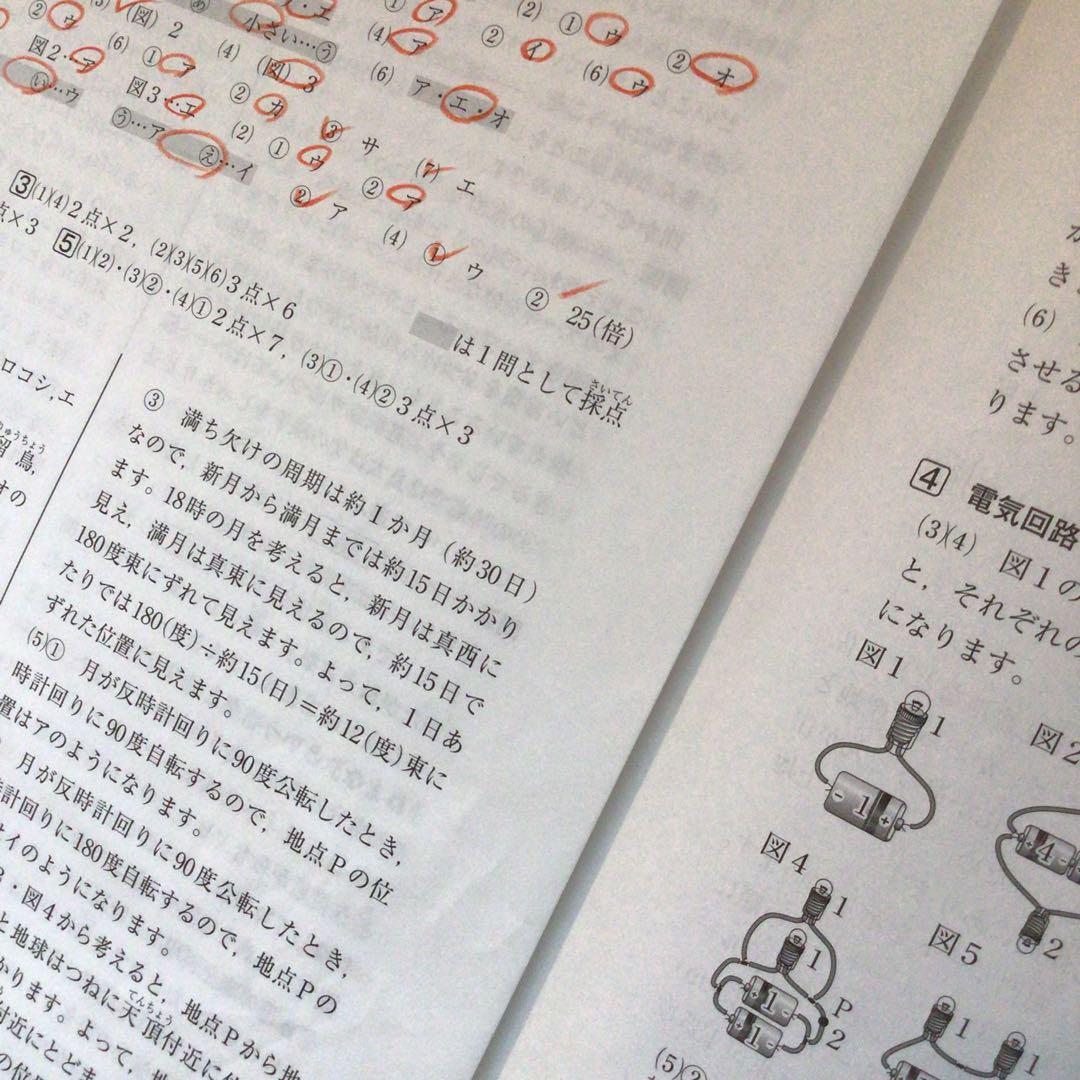 ② ウ
(図) 2
小さい…う
① ア
(2) ① ウ
② オ
図2…ア
(6) ① ア
(4) (図) 3
(4) ア
② イ
(6) ウ
い…ウ
図3…エ
② カ
(6) ア・エ・オ
う…ア
え…イ
(2) ① ウ
③ サ
(7) エ
② ア
② ア
(4) ① ウ
② 25(倍)
3(1)(4)2点×2, (2)(3)(5)(6)3点×6
点×3 5(1)(2)・(3)②・(4)①2点×7, (3)①・(4)②3点×3
は1問として採点
さいてん
ロコシ,エ
りゅうちょう
留鳥,
すの
③ 満ち欠けの周期は約1か月(約30日)
なので, 新月から満月までは約15日かかり
ます。18時の月を考えると, 新月は真西に
見え, 満月は真東に見えるので, 約15日で
180度東にずれて見えます。よって, 1日あ
たりでは180(度)÷約15(日)=約12(度)東に
ずれた位置に見えます。
(5)① 月が反時計回りに90度公転したとき,
時計回りに90度自転するので, 地点Pの位
置はアのようになります。
月が反時計回りに90度公転したとき,
計回りに180度自転するので, 地点Pの
はイのようになります。
・図4から考えると, 地点Pから地
と地球はつねに天頂付近に
てんちょう
かります。よって, 地
付近にとどま
の位
き
(6)
させる
ります。
4 電気回路
(3)(4) 図1の
と, それぞれの
になります。
図1
1
1
図2
4
2
図4
1
1
1
1
P
2
図5
1
1
(5)②